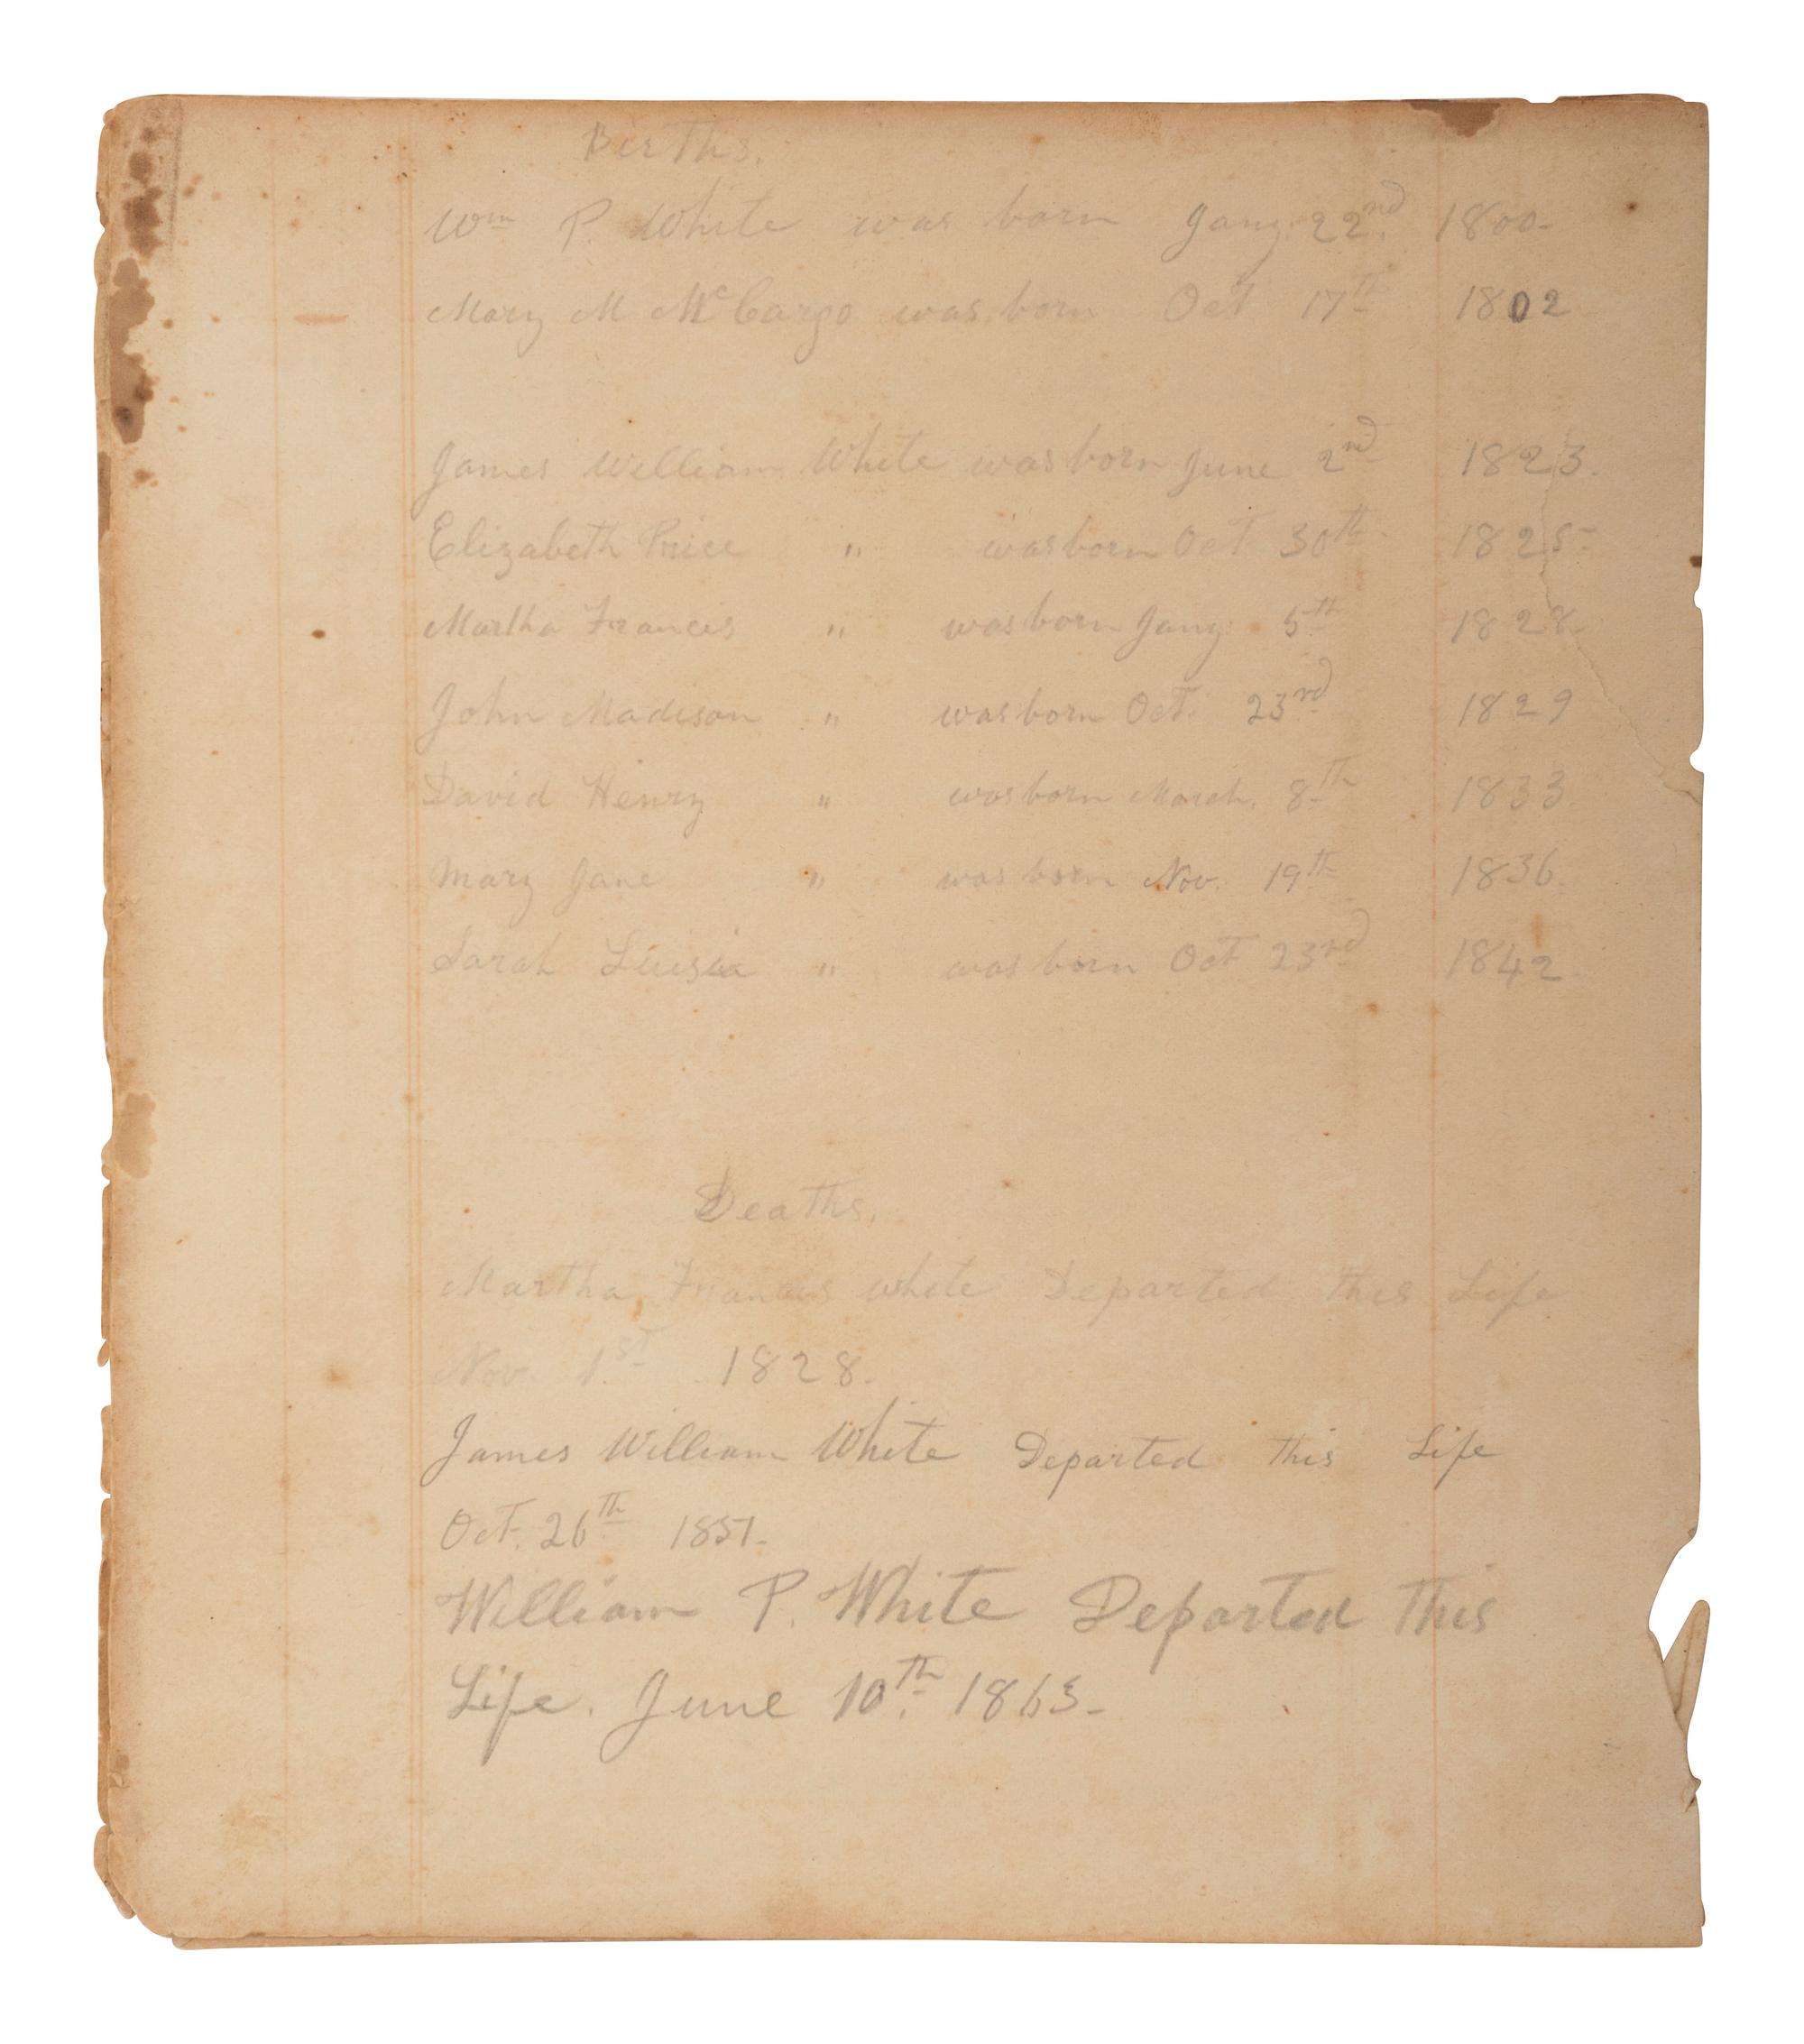 Births.
Wm P. White was born Jany. 22nd 1800-
Mary M McCargo was born Oct 17th 1802
James William White was born June 2nd 1823.
Elizabeth Price " was born Oct 30th 1825-
Martha Francis " was born Jany. 5th 1828-
John Madison " was born Oct. 23rd 1829
David Henry " was born March. 8th 1833
Mary Jane " was born Nov. 19th 1836.
Sarah " was born Oct 23rd 1842
Deaths.
Martha Francis White Departed this Life
Nov. 1st 1828.
James William White Departed this Life
Oct. 26th 1851-
William P. White Departed This
Life. June 10th. 1863-